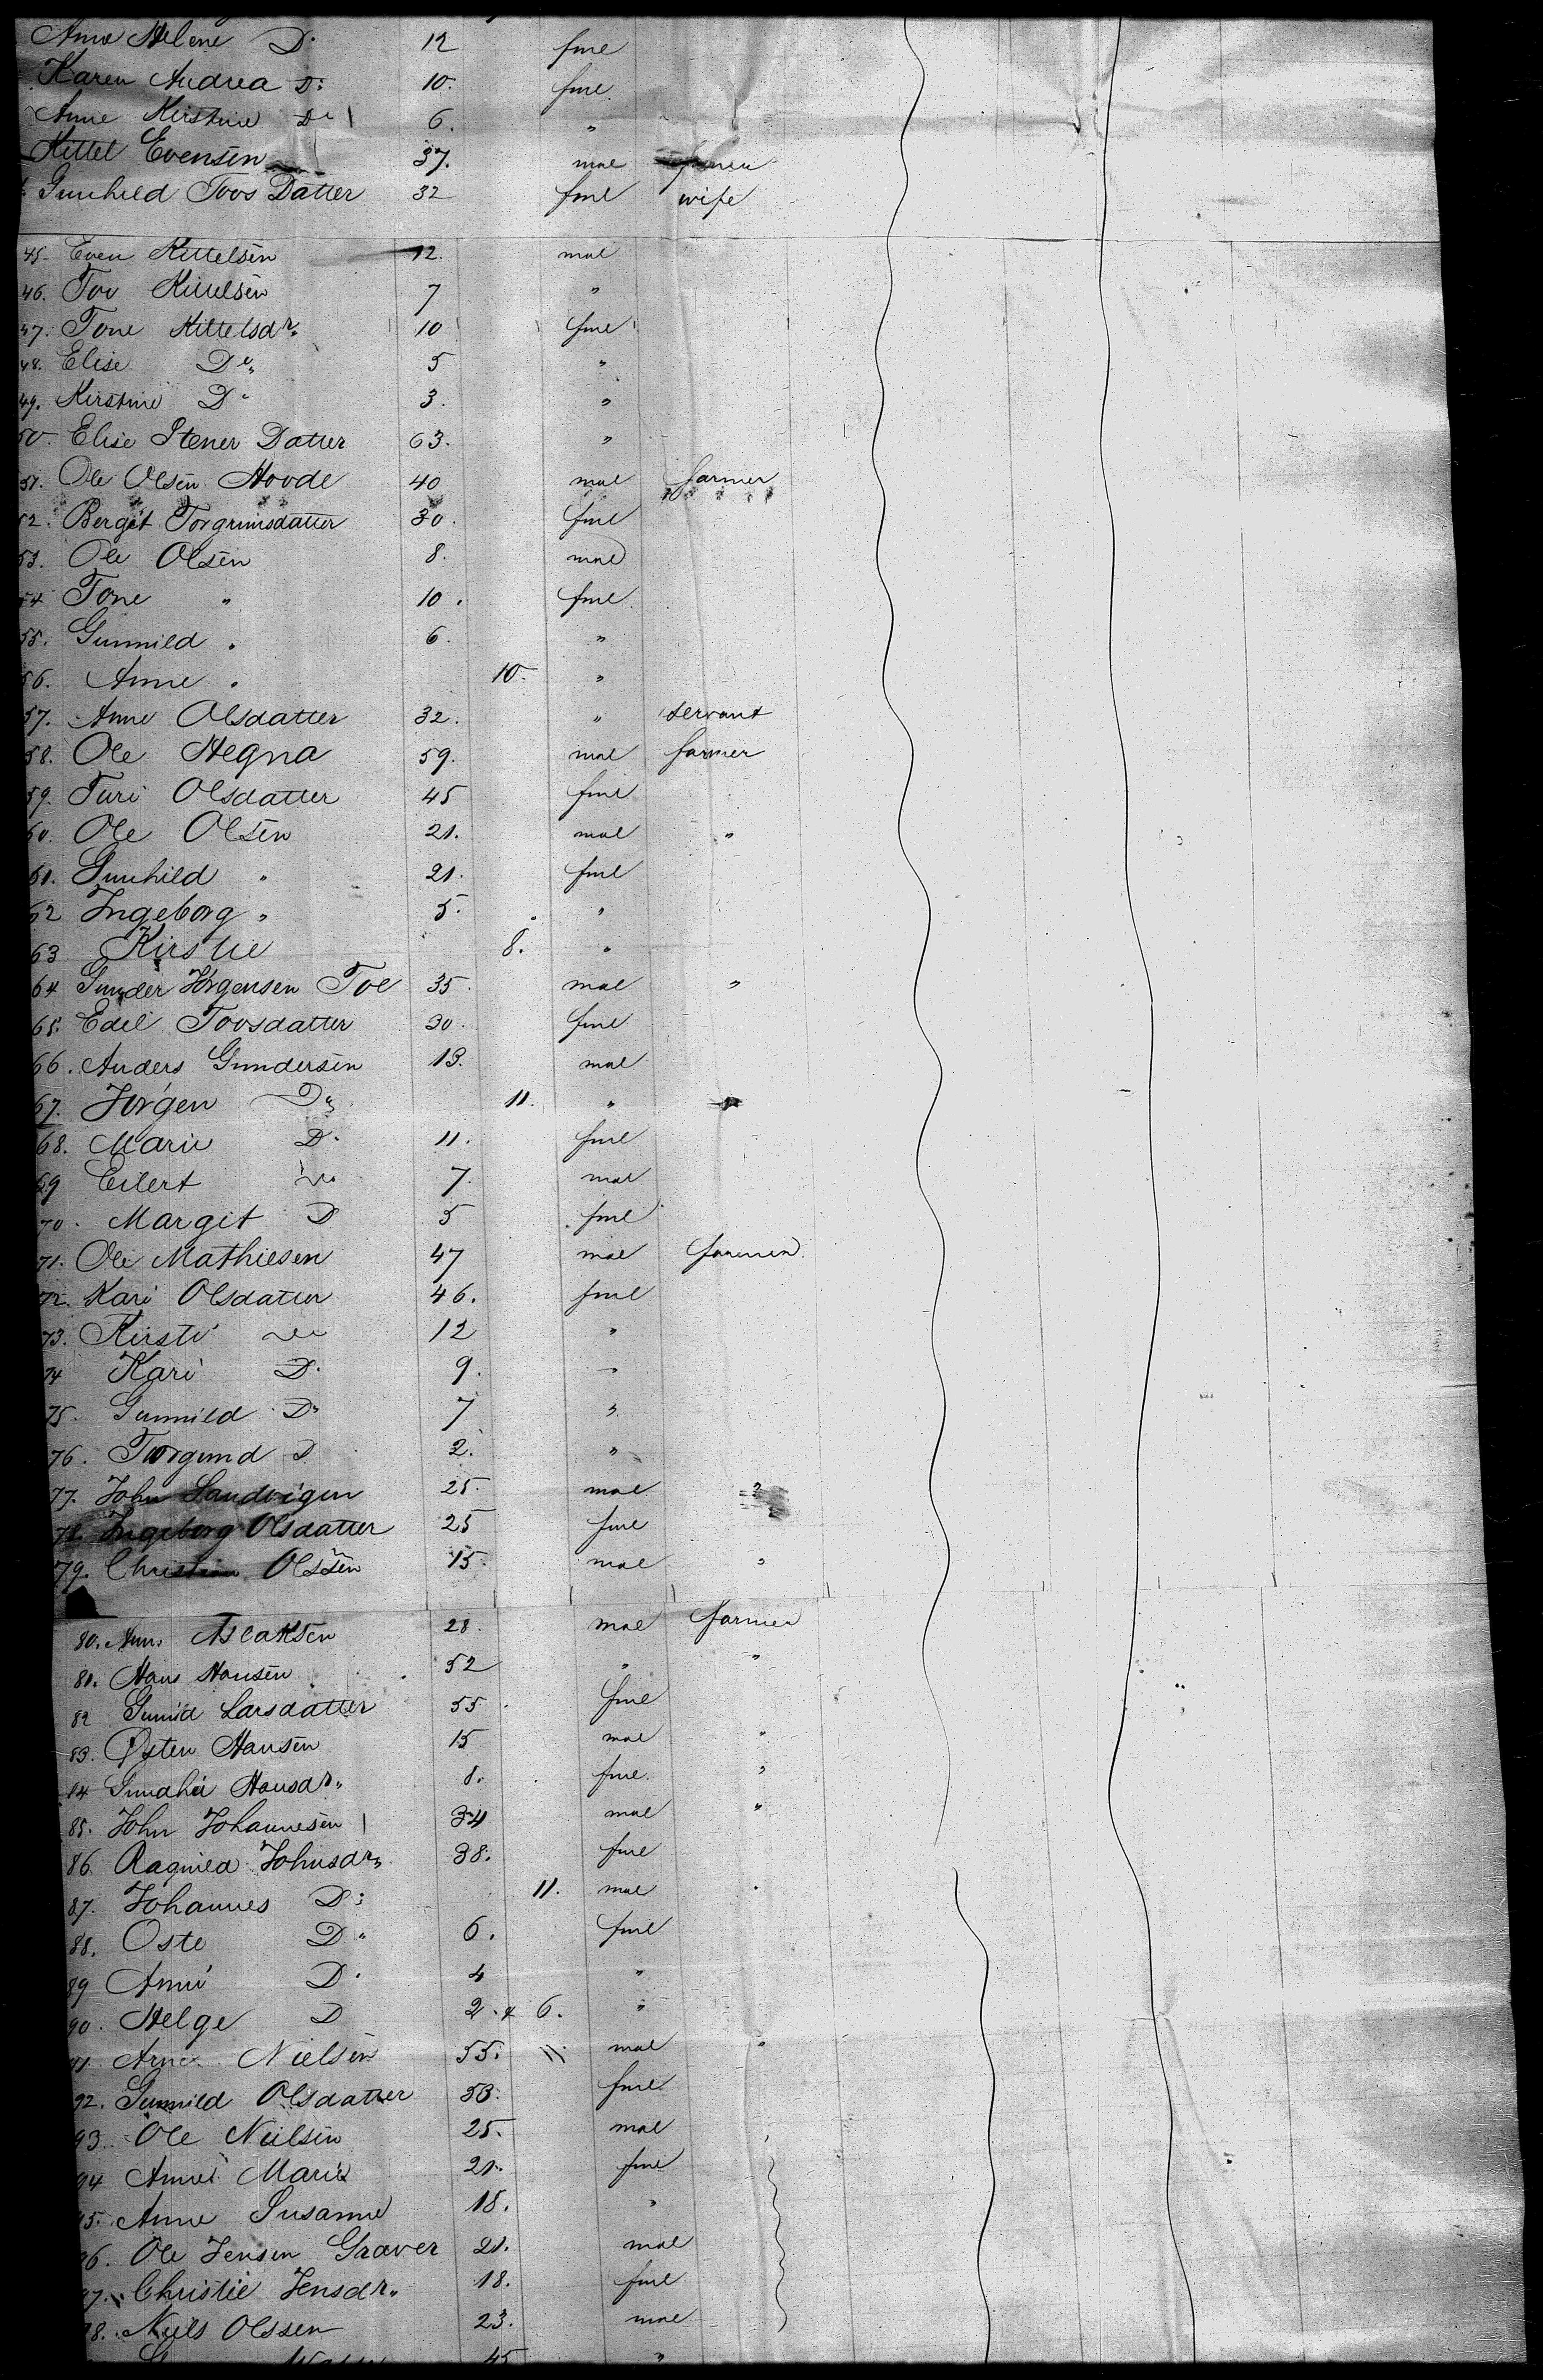 Anne Helene D. 12 fml
Karen Andrea D: 10. fml
Anne Kirstine Do 6. "
Kittel Evensen 37. mal
Gunhild Tovs Datter 32 fml wife
45. Even Kittelsen 12. mal
46. Tov Kittelsen 7 "
47. Tone Kittelsdr. 10 fml
48. Elise Do 5 "
49. Kirstine D" 3. "
50. Elise Stener Datter 63. "
51. Ole Olsen Hovde 40 mal farmer
52. Bergit Torgrimsdatter 30. fml
53. Ole Olsen 8. mal
54 Tone " 10. fml
55. Gunnild " 6. "
56. Anne " 10. "
57. Anne Olsdatter 32. " servant
58. Ole Hegna 59. mal farmer
59. Turi Olsdatter 45 fml
60. Ole Olsen 21. mal "
61. Gunhild " 21. fml
62 Ingeborg " 5. "
63 Kirstie 8. "
64 Gunder Jørgensen Toe 35. mal "
65. Edel Tovsdatter 30. fml
66. Anders Gundersen 13. mal
67. Jørgen Do 11. "
68. Marie D. 11. fml
69 Eilert Do 7. mal
70. Margit D 5 fml
71. Ole Mathiesen 47 mal farmer
72. Kari Olsdatter 46. fml
73. Kirsti Do 12 "
74 Kari D. 9. "
75. Gunnild D" 7 "
76. Torgund D 2. "
77. John Sandvigen 25. mal "
78. Ingeborg Olsdatter 25 fml
79. Christian Olssen 15. mal "
80. Aslaksen 28. mal farmer
81. Hans Hansen 52 " "
82 Gunild Larsdatter 55 fml
83. Østen Hansen 15 mal "
84 Hansdr. 8. fml "
85. John Johannesen 34 mal "
86. Ragnild Johnsdr. 38. fml
87. Johannes D: 11. mal
88. Oste D" 6. fml
89 Anne D. 4 "
90. Helge D 2. & 6. "
91. Arne Nielsen 55. mal "
92. Gunnild Olsdatter 53. fml
93. Ole Nielsen 25. mal
94 Anne Marie 21. fml
95. Anne Susanne 18. "
96. Ole Jensen Graver 21. mal
97. Christie Jensdr. 18. fml
98. Niels Olssen 23. mal
45 "